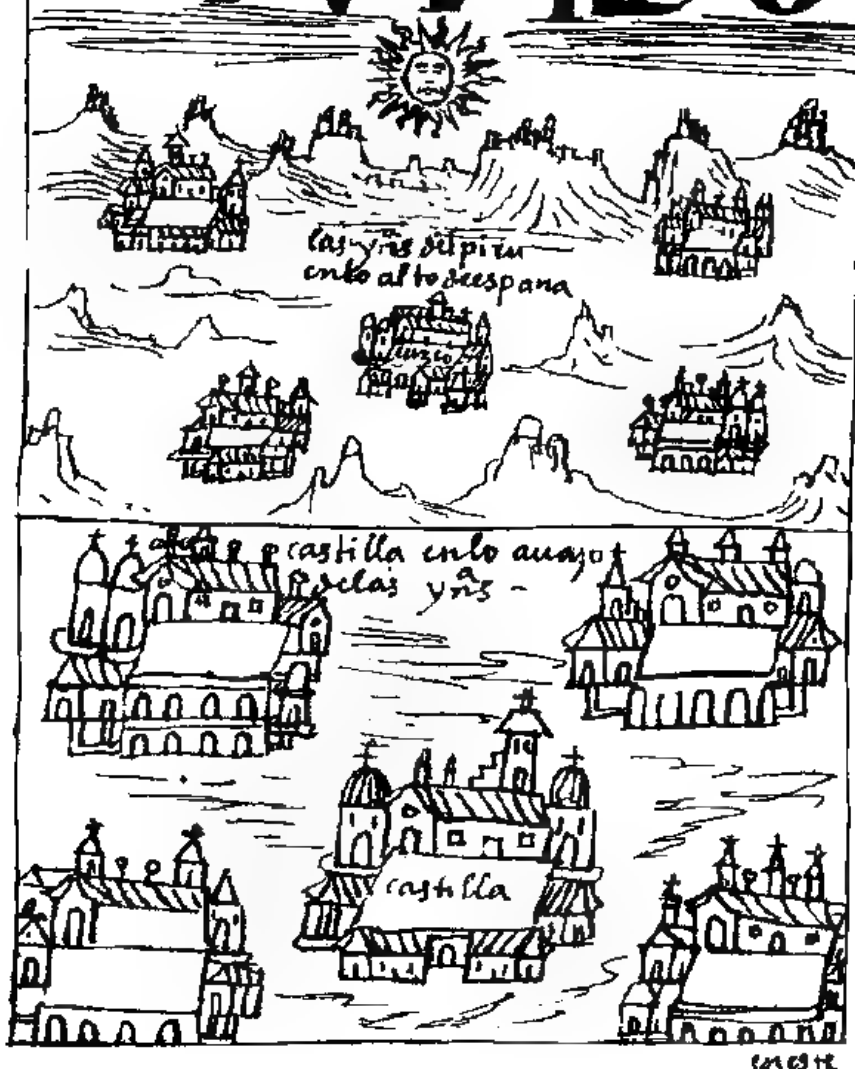 las yñs del piru
en lo alto de espana
cuzco
castilla en lo auajo
de las yñas -
castilla
en este